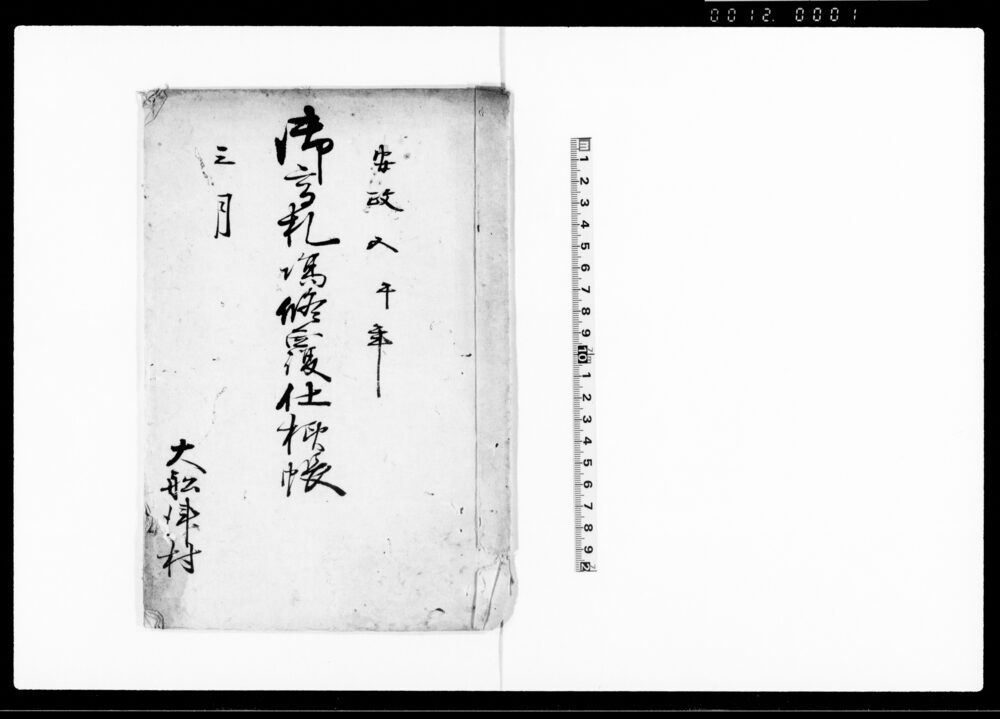 0012. 0001
安政五午年
御高札場修覆仕様帳
三月
大舩津村
1 2 3 4 5 6 7 8 9 10 1 2 3 4 5 6 7 8 9